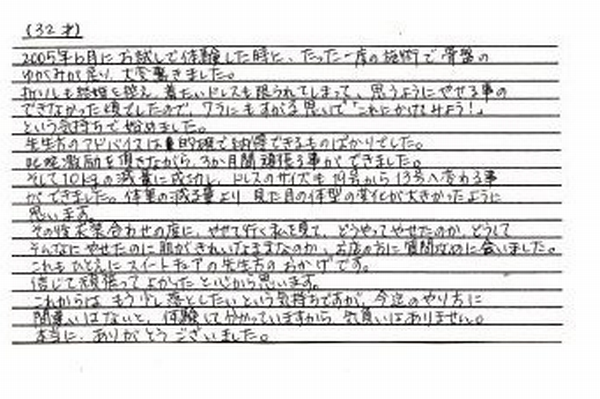 (32才)
2005年6月にお試しで体験した時に、たった一度の施術で骨盤の
ゆがみが戻り、大変驚きました。
折りしも結婚を控え、着たいドレスも限られてしまって、思うようにやせる事の
できなかった頃でしたので、ワラにもすがる思いで「これにかけてみよう!」
という気持ちで始めました。
先生方のアドバイスは量的現で納得できるものばかりでした。
叱咤激励を頂きながら、3か月間頑張る事ができました。
そして10kgの減量に成功し、ドレスのサイズも19号から13号へ変わる事
ができました。体重の減る量より、見た目の体型の変化が大きかったように
思います。
その後衣裳合わせの度に、やせて行く私を見て、どうやってやせたのか、どうして
そんなにやせたのに肌がきれいなままなのか、お店の方に質問ぜめに会いました。
これもひとえにスイートキュアの先生方のおかげです。
信じて頑張ってよかったと心から思います。
これからは、もう少し落としたいという気持ちですが、今迄のやり方に
間違いはないと、体験して分かっていますから、気負いはありません。
本当に、ありがとうございました。